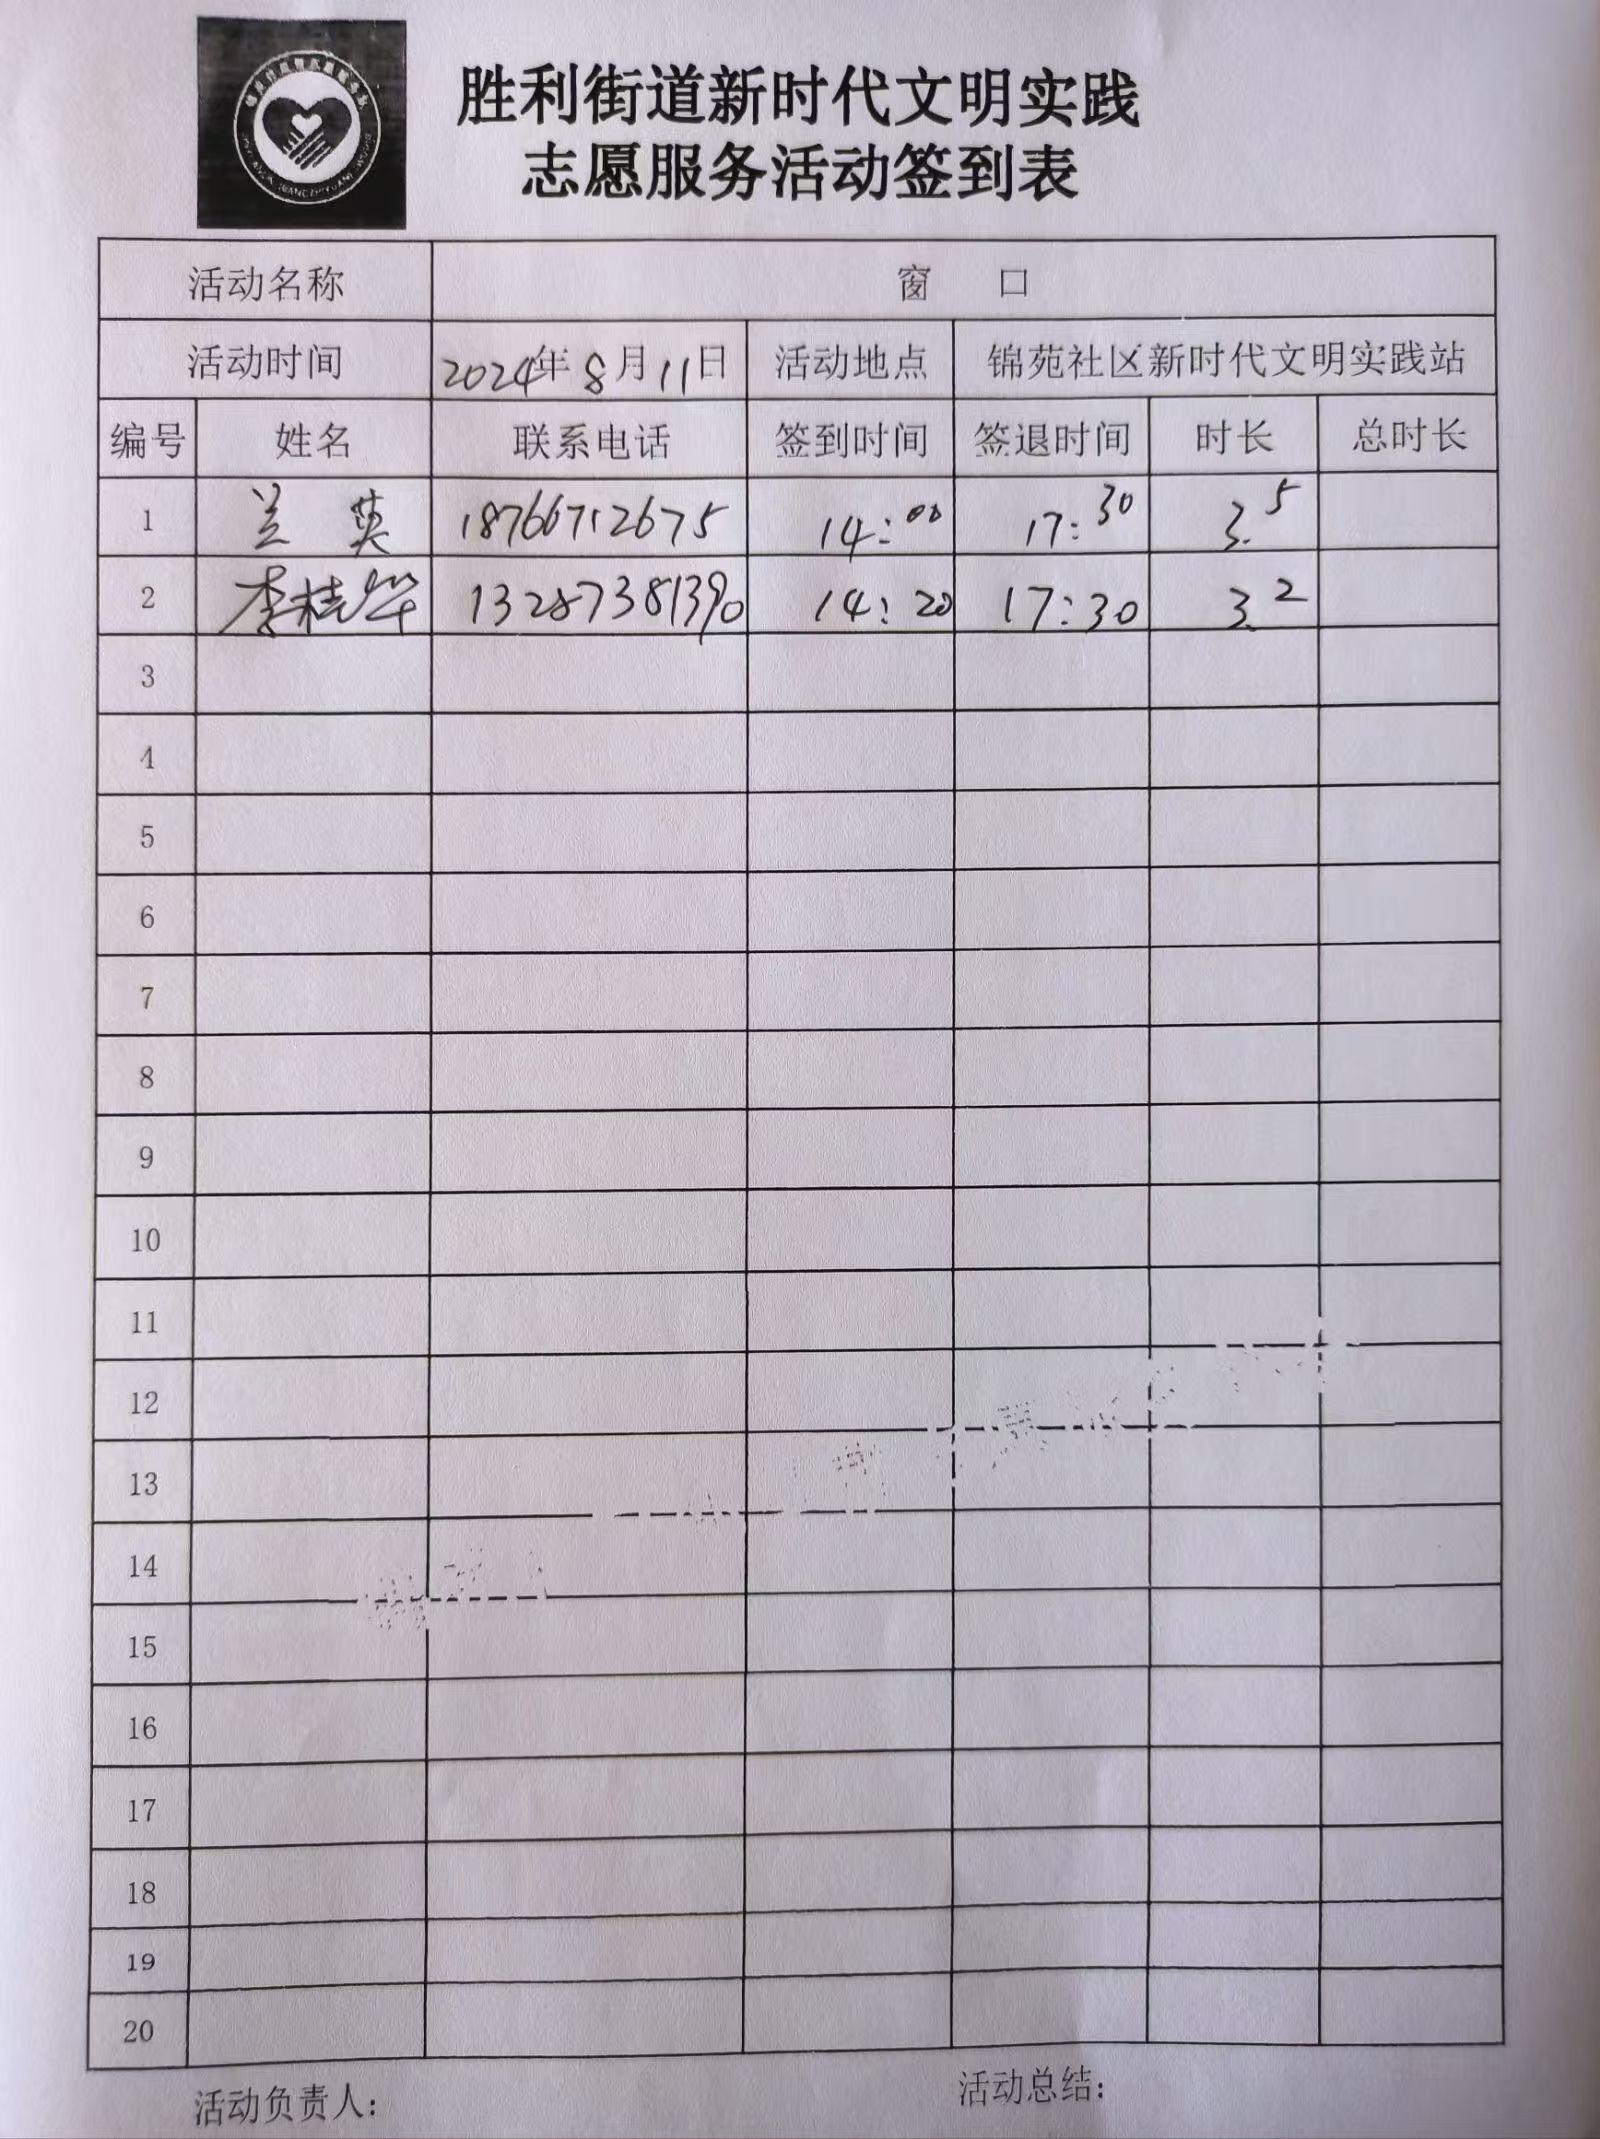 胜利街道新时代文明实践
志愿服务活动签到表
活动名称 窗 口
活动时间 2024年8月11日 活动地点 锦苑社区新时代文明实践站
编号 姓名 联系电话 签到时间 签退时间 时长 总时长
1 兰英 18766712675 14:00 17:30 3.5
2 李桂华 13287381390 14:20 17:30 3.2
3
4
5
6
7
8
9
10
11
12
13
14
15
16
17
18
19
20
活动负责人: 活动总结: